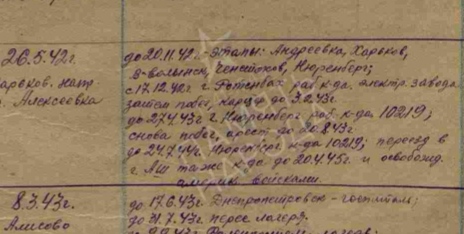 26.5.42г.
Харьков. напр.
г. Алексеевка
до 20.11.42 - этапы: Андреевка, Харьков,
В-Волынск, Ченстохов, Нюренберг;
с 17.12.42г г. Ротенбах раб. к-да электр. завода
затем побег, карцер до 3.2.43г
до 27.4.43г г. Нюренберг раб. к-да 10219;
снова побег, арест до 20.8.43г
до 24.7.44г. Нюренберг к-да 10219; переезд в
г. Аш та же к-да до 20.4.45г. и освобожд.
америк. войсками.
8.3.43г.
Алисово
до 17.6.43г. Днепропетровск - госпиталь;
до 31.7.43г. перес. лагерь